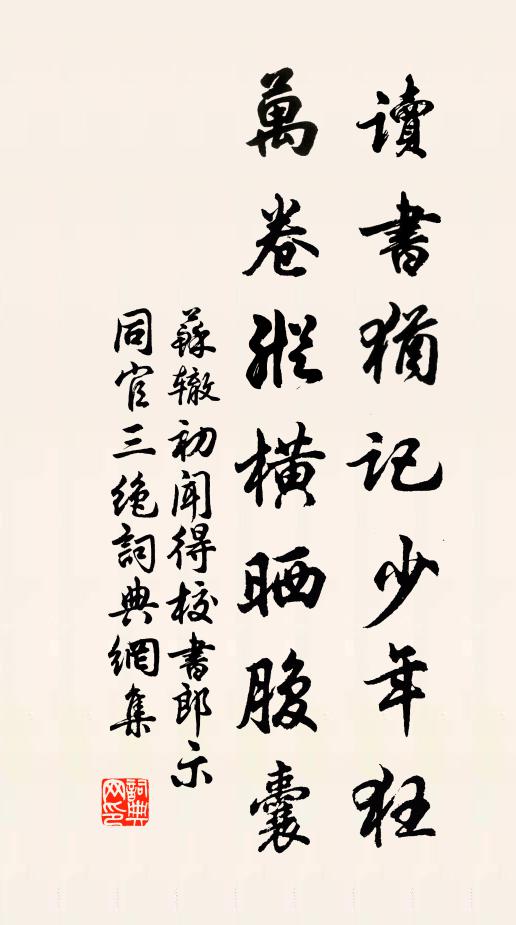 讀書猶記少年狂
萬卷縱橫晒腹囊
蘇辙初聞得校書郎示
同官三绝詞典網集
詞典
网印